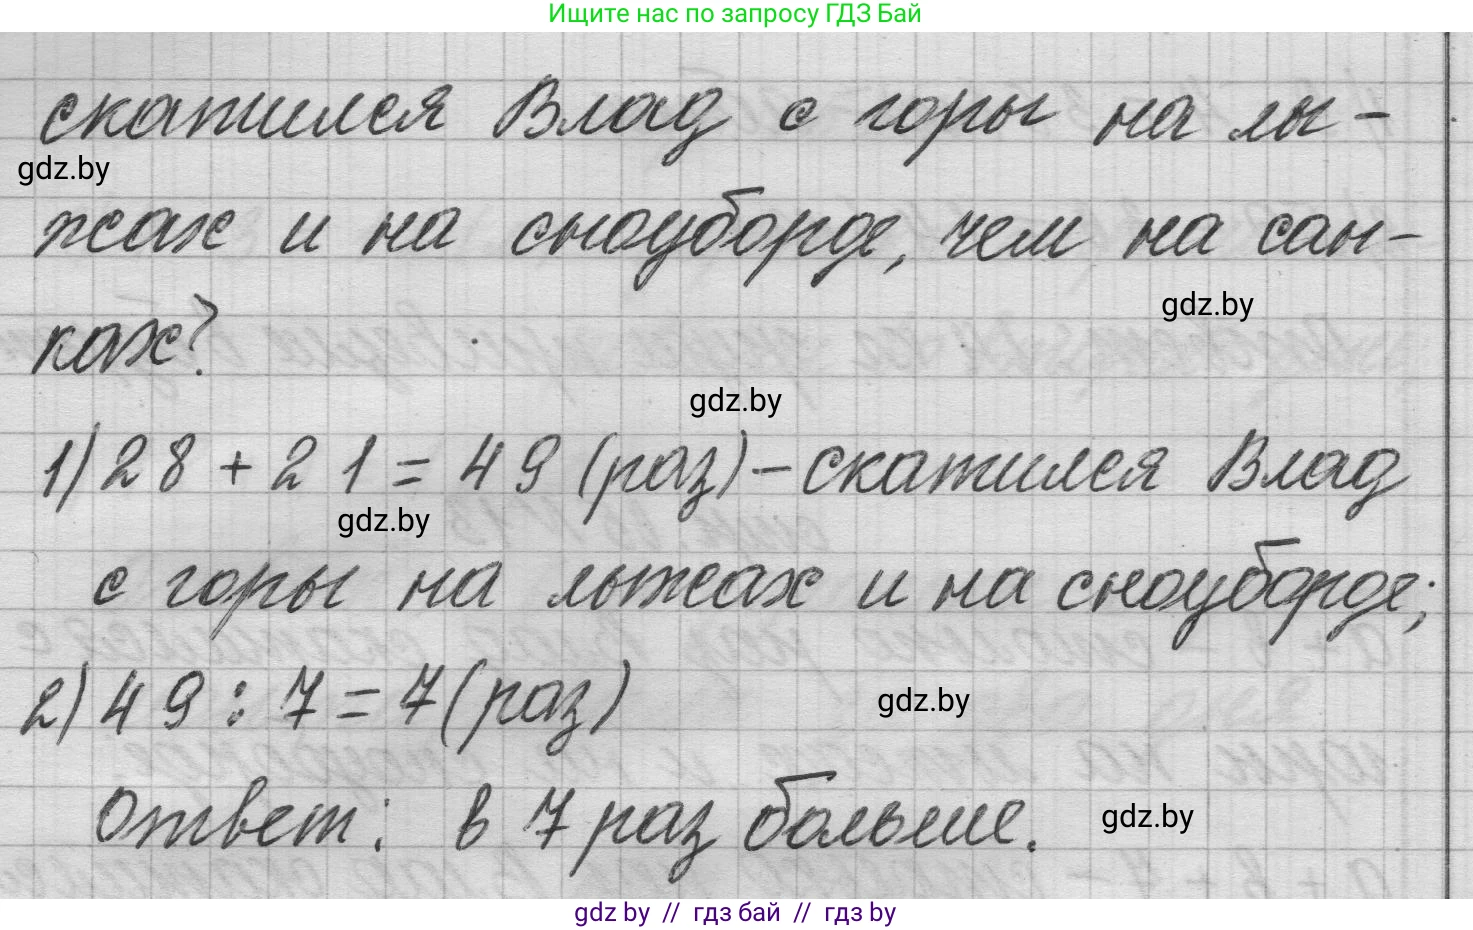 Ищите нас по запросу ГДЗ Бай
скатился Влад с горы на лы-
gdz.by
жах и на сноуборде, чем на сан-
gdz.by
ках?
gdz.by
1) 28 + 21 = 49 (раз) - скатился Влад
gdz.by
с горы на лыжах и на сноуборде;
2) 49 : 7 = 7 (раз)
gdz.by
Ответ: в 7 раз больше.
gdz.by
gdz by // гдз бай // гдз by